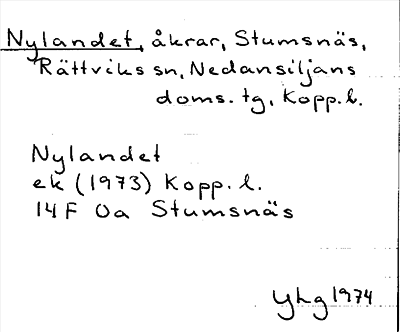 Nylandet, åkrar, Stumsnäs,
Rättviks sn, Nedansiljans
doms. tg, Kopp. l.
Nylandet
ek (1973) Kopp. l.
14 F 0a Stumsnäs
YHg 1974